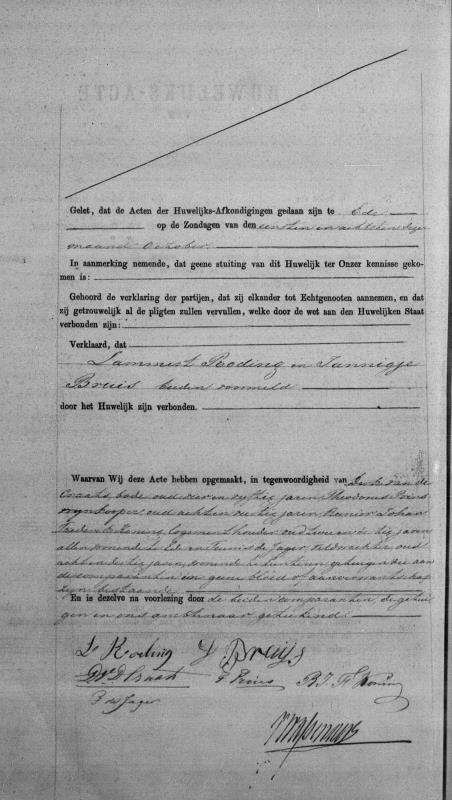 HUWELIJKS-ACTE
Gelet, dat de Acten der Huwelijks-Afkondigingen gedaan zijn te Ede
op de Zondagen van den eersten en achtsten dezer
maand October.
In aanmerking nemende, dat geene stuiting van dit Huwelijk ter Onzer kennisse geko-
men is:
Gehoord de verklaring der partijen, dat zij elkander tot Echtgenooten aannemen, en dat
zij getrouwelijk al de pligten zullen vervullen, welke door de wet aan den Huwelijken Staat
verbonden zijn:
Verklaard, dat
Lammert Roding en Jannigje
Bruis beiden voormeld
door het Huwelijk zijn verbonden.
Waarvan Wij deze Acte hebben opgemaakt, in tegenwoordigheid van van de
Craats, bode oud vier en vijftig jaren, Theodorus Prins
oud acht en dertig jaren, Johan
Koning logementhouder oud en dertig jaren
allen wonende te Ede en de Jager, veldwachter oud
acht en dertig jaren, wonende te getuigen die aan
de comparanten in geene bloed of aanverwantschap
zijn bestaande
En is dezelve na voorlezing door de beiden comparanten, de getui-
gen en ons ambtenaar geteekend.
L Roding J Bruijs
D vd Craats T Prins B J F Koning
J de Jager